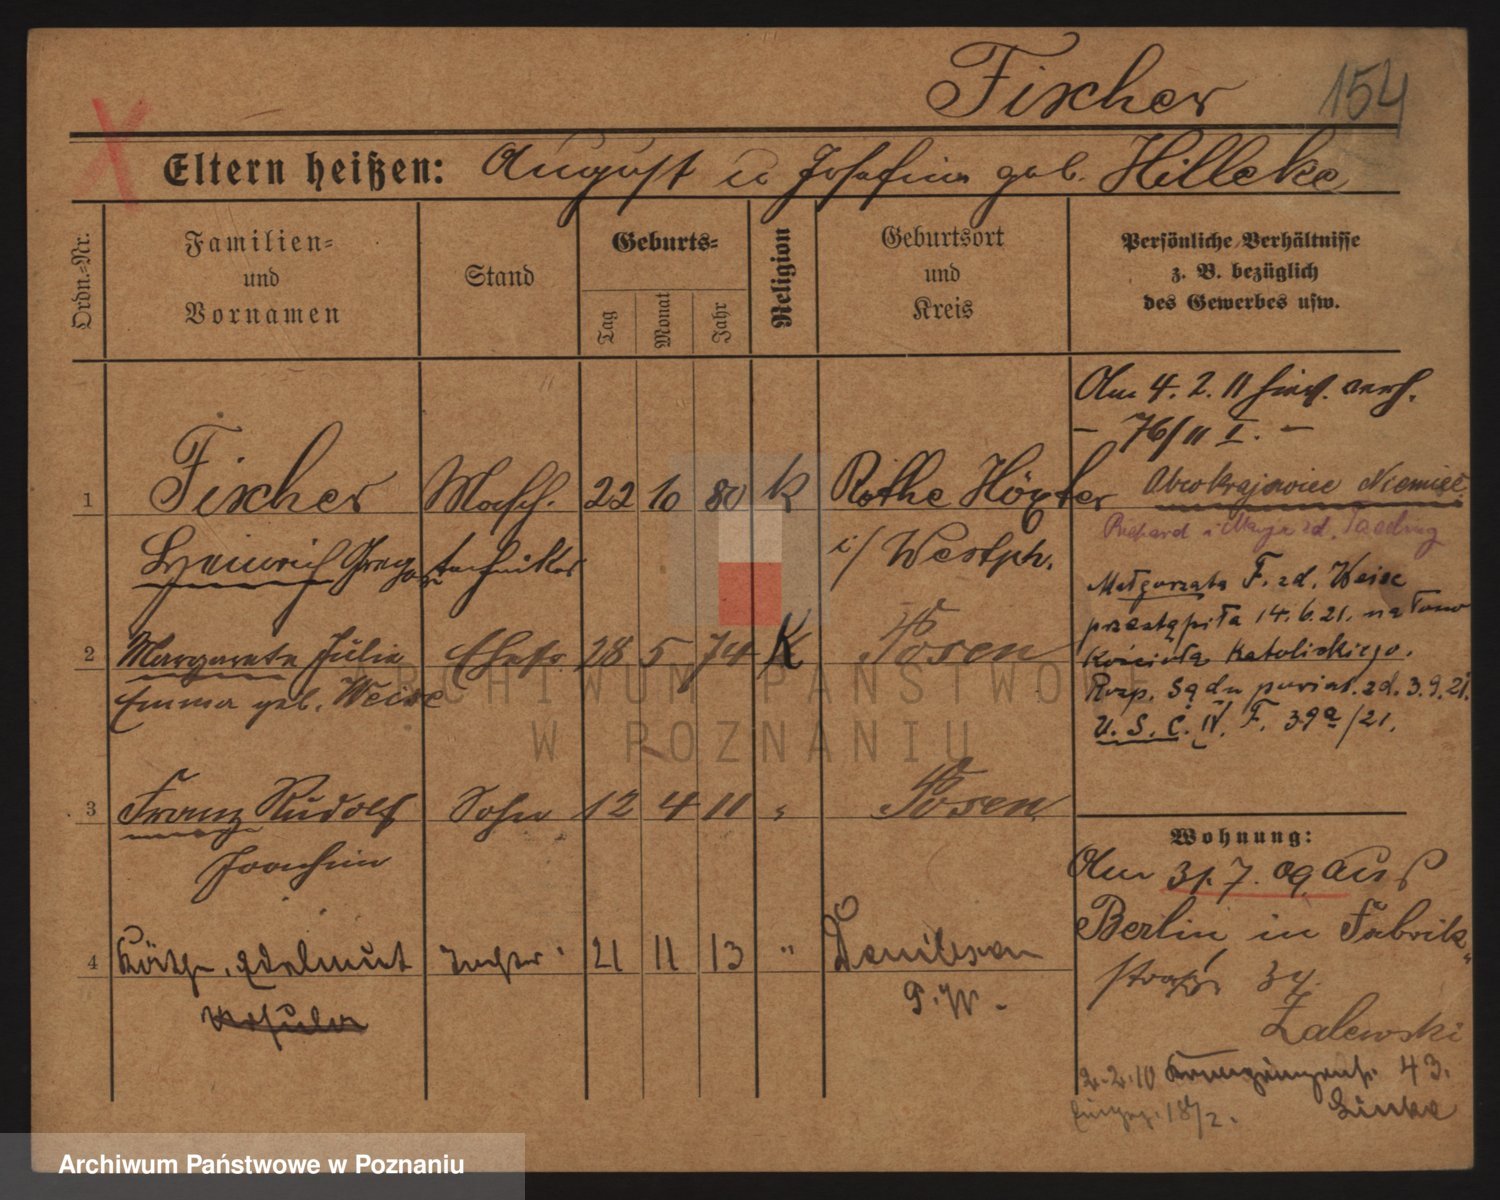 Fischer 154
Eltern heißen: August u Josefine geb. Hilleke
Ordn.=Nr.
Familien=
und
Vornamen
Stand
Geburts=
Tag
Monat
Jahr
Religion
Geburtsort
und
Kreis
Persönliche Verhältnisse
z. B. bezüglich
des Gewerbes usw.
Am 4. 2. 11 hies. verh.
- 76/11 I. -
1 Fischer Masch. 22 10 80 k Rothe Höxter
Heinrich Gregor techniker i/ Westph.
Obcokrajowiec Niemiec
Richard i Marja zd.
Małgorzata F. zd. Weise
przestąpiła 14.6.21. na łono
Kościoła Katolickiego.
Rozp. Sądu powiat. zd. 3.9.21.
U. S. C. IV. F. 39a/21.
2 Margarete Julie Ehefr. 28 5 74 K Posen
Emma geb. Weise
3 Franz Rudolf Sohn 12 4 11 " Posen
Joachim
Wohnung:
Am 31. 7. 09 aus
Berlin in Fabrik
straße 34.
Zalewski
4 Käthe, Edelmut Tochter 21 11 13 "
Ursula P. W.
2.2.10 43.
Linke
18/2.
ARCHIWUM PAŃSTWOWE
W POZNANIU
Archiwum Państwowe w Poznaniu